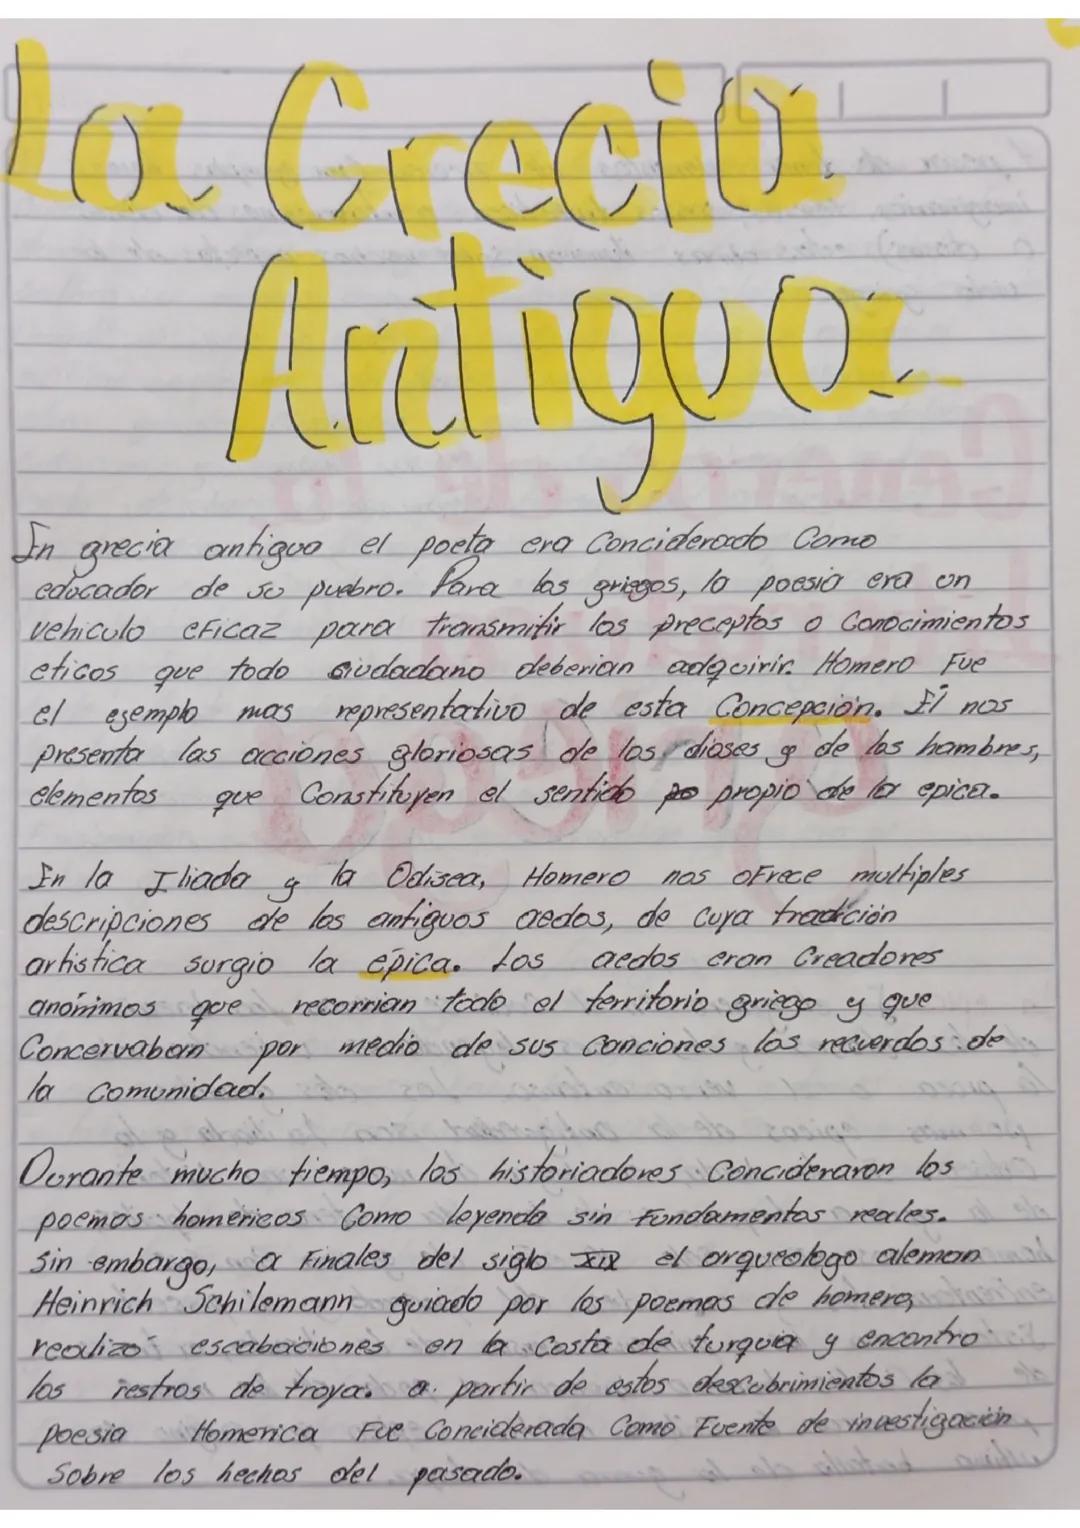 La Grecia
Antigua
En grecia antigua el poeta era Conciderado Como
educador de su puebro. Para los griegos, la poesia era un
vehiculo eficaz para transmitir los preceptos o Conocimientos
eticos que todo ciudadano deberian adquirir. Homero Fue
el ejemplo mas representativo de esta Concepción. Él nos
presenta las acciones gloriosas de los dioses y de los hombres,
elementos que Constituyen el sentido propio de la epica.
En la Iliada y la Odisea, Homero nos ofrece multiples
descripciones de los antiguos aedos, de cuya tradición
artistica surgio la épica. Los aedos eran Creadores
anónimos que recorrian todo el territorio griego y que
Concervaban por medio de sus Canciones los recuerdos de
la Comunidad.
Durante mucho tiempo, los historiadores Concideraron los
poemas homericos Como leyenda sin Fundamentos reales.
Sin embargo, a Finales del siglo XIX el arqueologo aleman
Heinrich Schilemann guiado por los poemas de homero,
realizo escabaciones en la Costa de turquia y encontro
los restros de troya. a partir de estos descubrimientos la
poesia Homerica Fue Conciderada Como Fuente de investigación
Sobre los hechos del pasado.